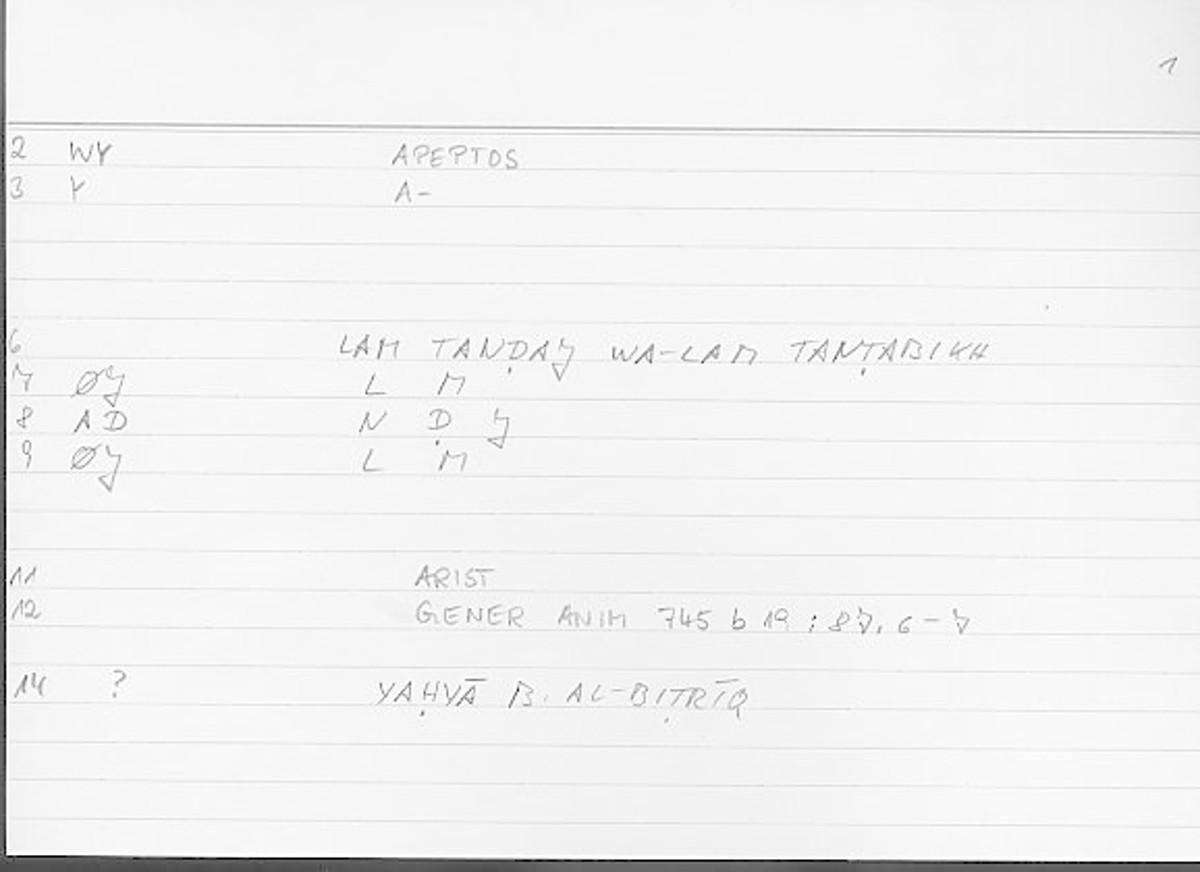 1
2 WY APEPTOS
3 Y A-
6 LAM TANḌAJ WA-LAM TANṬABIKH
7 ØJ L M
8 AD N Ḍ J
9 ØJ L M
11 ARIST
12 GENER ANIM 745 b 19 : 87, 6-7
14 ? YAḤYĀ B. AL-BIṬRĪQ